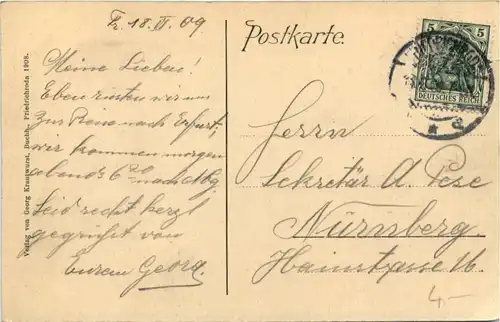 Fr. 18. VI. 09
Postkarte.
5 5
DEUTSCHES REICH
Meine Lieben!
Eben rüsten wir uns
zur Reise nach Erfurt,
wir kommen morgen
abends 6 20 nach Nbg.
Seid recht herzl.
gegrüßt von
Eurem Georg.
Herrn
Sekretär A. Pese
Nürnberg.
Hainstrasse 16.
4,-
Verlag von Georg Krautwurst, Buchh., Friedrichroda 1908.